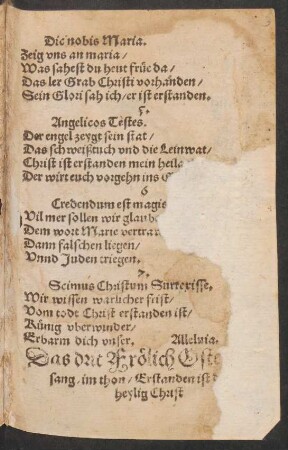 Dic nobis Maria.
Zeig vns an maria/
Was sahest du heut früe da/
Das ler Grab Christi vorhanden/
Sein Glori sah ich/er ist erstanden.
5.
Angelicos Testes.
Der engel zeygt sein stat/
Das schweißtuch vnd die Leinwat/
Christ ist erstanden mein
Der wirt euch vorgehn ins
6
Credendum est magis
Vil mer sollen wir
Dem wort Marie
Dann falschen liegen/
Vnnd Juden triegen.
7.
Scimus Christum Surrexisse.
Wir wissen warlicher frist/
Vom todt Christ erstanden ist/
Künig vberwinder/
Erbarm dich vnser. Alleluia.
Das drit Frölich
sang/im thon/Erstanden ist
heylig Christ